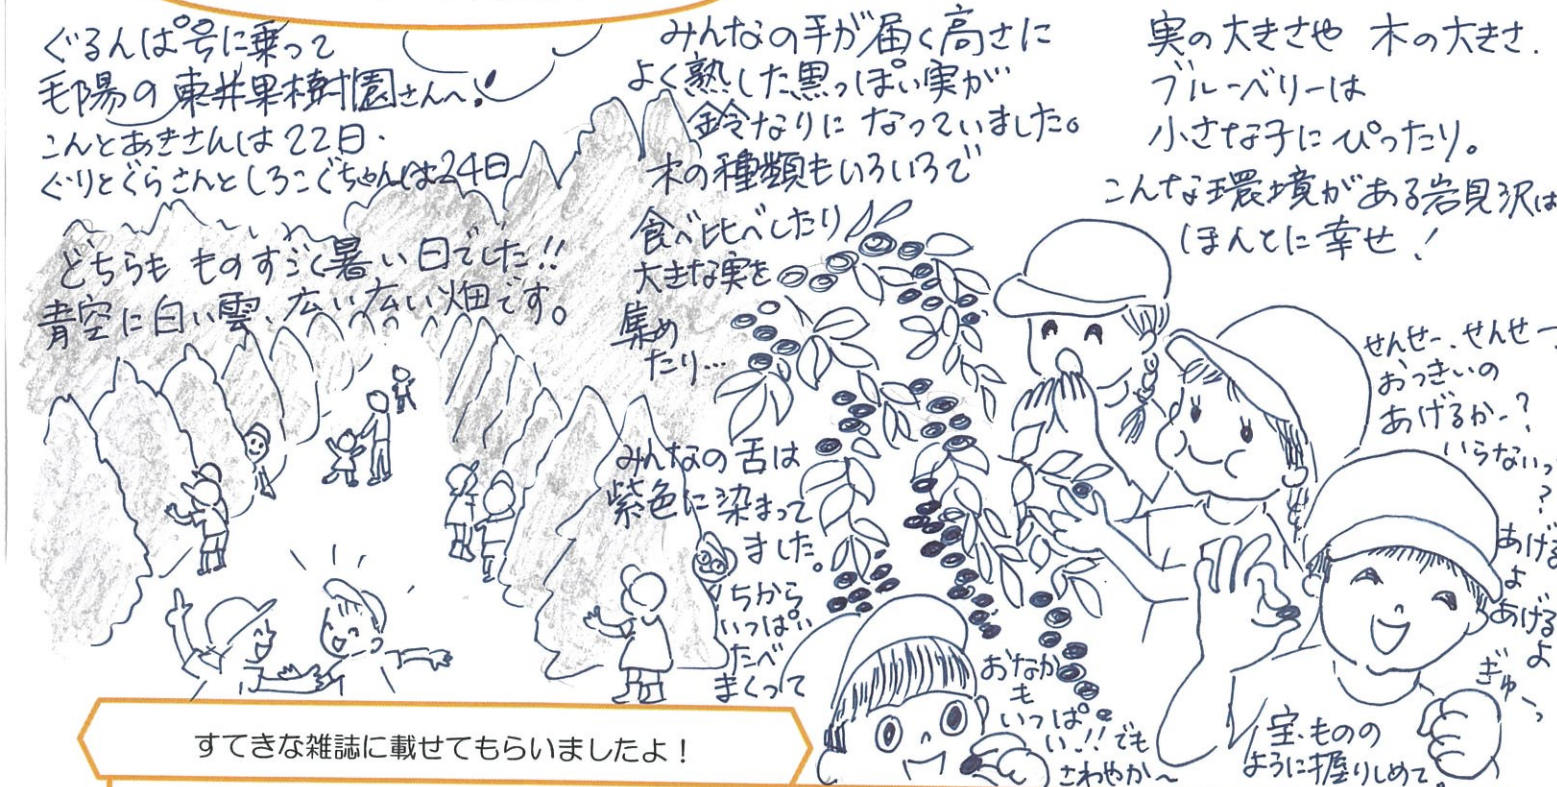 ぐるんぱ号に乗って
毛陽の東井果樹園さんへ!
こんとあきさんは22日.
ぐりとぐらさんとしろこぐちゃんは24日
どちらも ものすごく暑い日でした!!
青空に白い雲、広い広い畑です。
みんなの手が届く高さに
よく熟した黒っぽい実が
鈴なりに なっていました。
木の種類もいろいろで
食べ比べしたり
大きな実を
集め
たり…
みんなの舌は
紫色に染まって
ました。
ちから
いっぱい
たべ
まくって
おなか
も
いっぱ
い!!でも
さわやか〜
実の大きさや 木の大きさ.
ブルーベリーは
小さな子にぴったり。
こんな環境がある岩見沢は
ほんとに幸せ!
せんせー、せんせー、
おっきいの
あげるかー?
いらないっ
?
あげる
よ
あげる
よ
ぎゅーっ
宝ものの
ように握りしめて。
すてきな雑誌に載せてもらいましたよ！